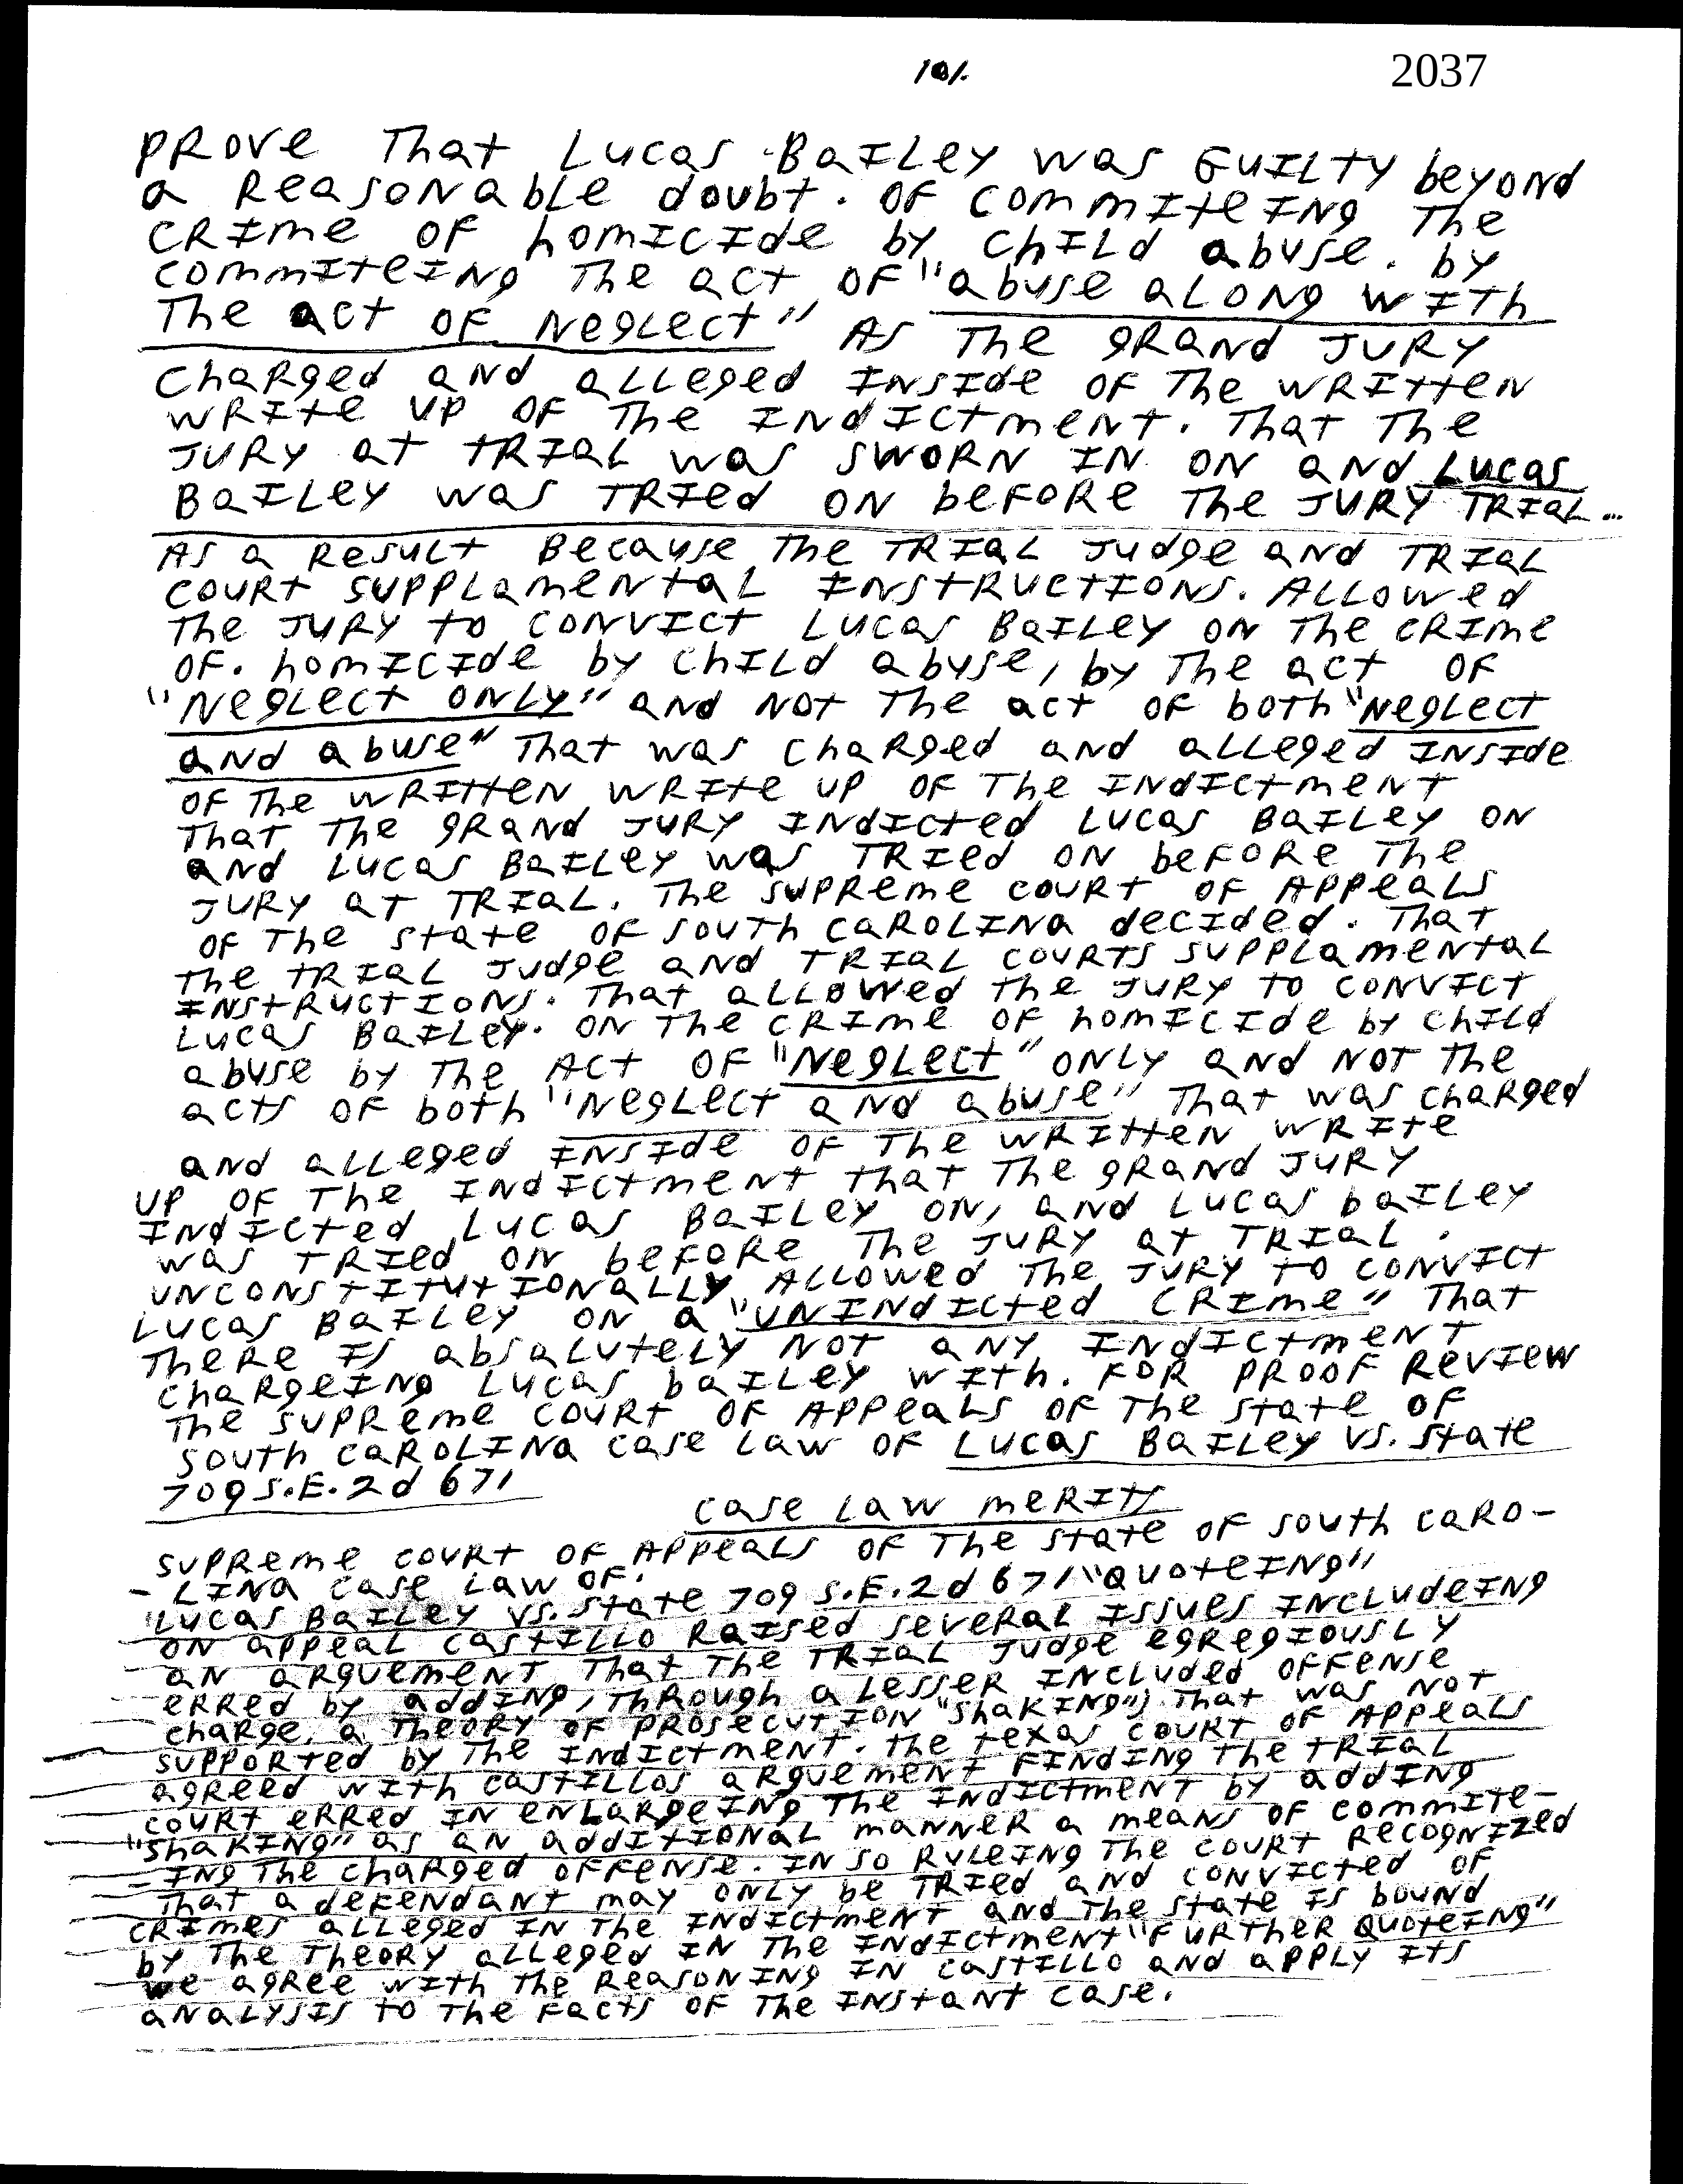 101. 2037
PROVE That LUCAS BAILEY WAS GUILTY beyond
a REASONABLE doubt. OF COMMITEING The
CRIME OF homICIDE by ChILD abuse. by
COMMITEING The act OF "abuse aLONG WITh
The act OF NEGLECT" AS The GRAND JURY
ChARGED AND ALLEGED INSIDE OF The WRITTEN
WRITE UP OF The INDICTMENT. That The
JURY at TRIAL was SWORN IN ON AND LUCAS
BAILEY was TRIED ON beFORE The JURY TRIAL...
AS a RESULT BECAUSE The TRIAL JUDGE AND TRIAL
COURT SUPPLAMENTAL INSTRUCTIONS. ALLOWED
The JURY TO CONVICT LUCAS BAILEY ON The CRIME
OF. homICIDE by ChILD abuse, by The act OF
"NEGLECT ONLY" AND NOT The act OF both "NEGLECT
and abuse" That was ChARGED AND ALLEGED INSIDE
OF The WRITTEN WRITE UP OF The INDICTMENT
That The GRAND JURY INDICTED LUCAS BAILEY ON
AND LUCAS BAILEY was TRIED ON beFORE The
JURY AT TRIAL. The SUPREME COURT OF APPEALS
OF The State OF SOUTh CAROLINA decided. That
The TRIAL JUDGE AND TRIAL COURTS SUPPLAMENTAL
INSTRUCTIONS. That ALLOWED The JURY TO CONVICT
LUCAS BAILEY. ON The CRIME OF homICIDE by ChILD
abuse by The ACT OF "NEGLECT" ONLY AND NOT The
acts OF both "NEGLECT AND abuse" That was ChARGED
AND ALLEGED INSIDE OF The WRITTEN WRITE
UP OF The INDICTMENT that The GRAND JURY
INDICTED LUCAS BAILEY ON, AND LUCAS bAILEY
was TRIED ON beFORE The JURY AT TRIAL.
UNCONSTITUTIONALLY ALLOWED The JURY TO CONVICT
LUCAS BAILEY ON a "UNINDICTED CRIME" That
ThERE IS absaLUTELY NOT ANY INDICTMENT
ChARGEING LUCAS bAILEY WITh. FOR PROOF REVIEW
The SUPREME COURT OF APPEALS OF The State OF
SOUTh CAROLINA CASE LAW OF LUCAS BAILEY VS. State
709 S.E.2d 671
CASE LAW MERITS
SUPREME COURT OF APPEALS OF The State OF SOUTh CARO-
-LINA CASE LAW OF.
"LUCAS BAILEY VS. State 709 S.E.2d 671 "QUOTEING"
ON APPEAL CASTILLO RAISED SEVERAL ISSUES INCLUDEING
AN ARGUEMENT That The TRIAL JUDGE EGREGIOUSLY
ERRED by adding, ThROUGh a LESSER INCLUDED OFFENSE
Charge, a ThEORY OF PROSECUTION "ShAKING") That was NOT
SUPPORTED by The INDICTMENT. The TEXAS COURT OF APPEALS
AGREED WITh CASTILLOS ARGUEMENT FINDING The TRIAL
COURT ERRED IN ENLARGEING The INDICTMENT by adding
"ShAKING" as AN additional manner a means OF COMMITE-
-ING The ChARGED OFFENSE. IN SO RULEING The COURT RECOGNIZED
That a deFENDANT may ONLY be TRIED AND CONVICTED OF
CRIMES ALLEGED IN The INDICTMENT AND The State IS bound
by The ThEORY ALLEGED IN The INDICTMENT "FURThER QUOTEING"
we agree WITh The REASONING IN CASTILLO AND APPLY ITS
ANALYSIS TO The FACTS OF The INSTANT CASE.